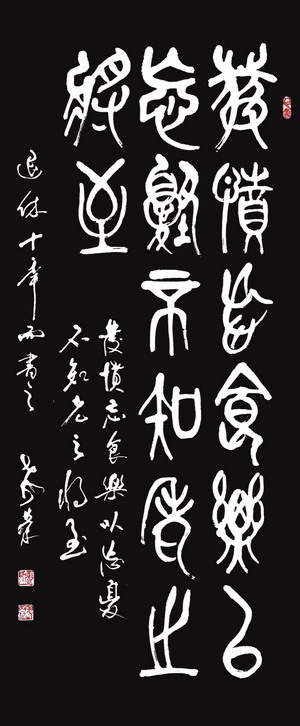 發憤忘食樂以
忘憂不知老之
將至
發憤忘食樂以忘憂
不知老之將至
退休十年而書之